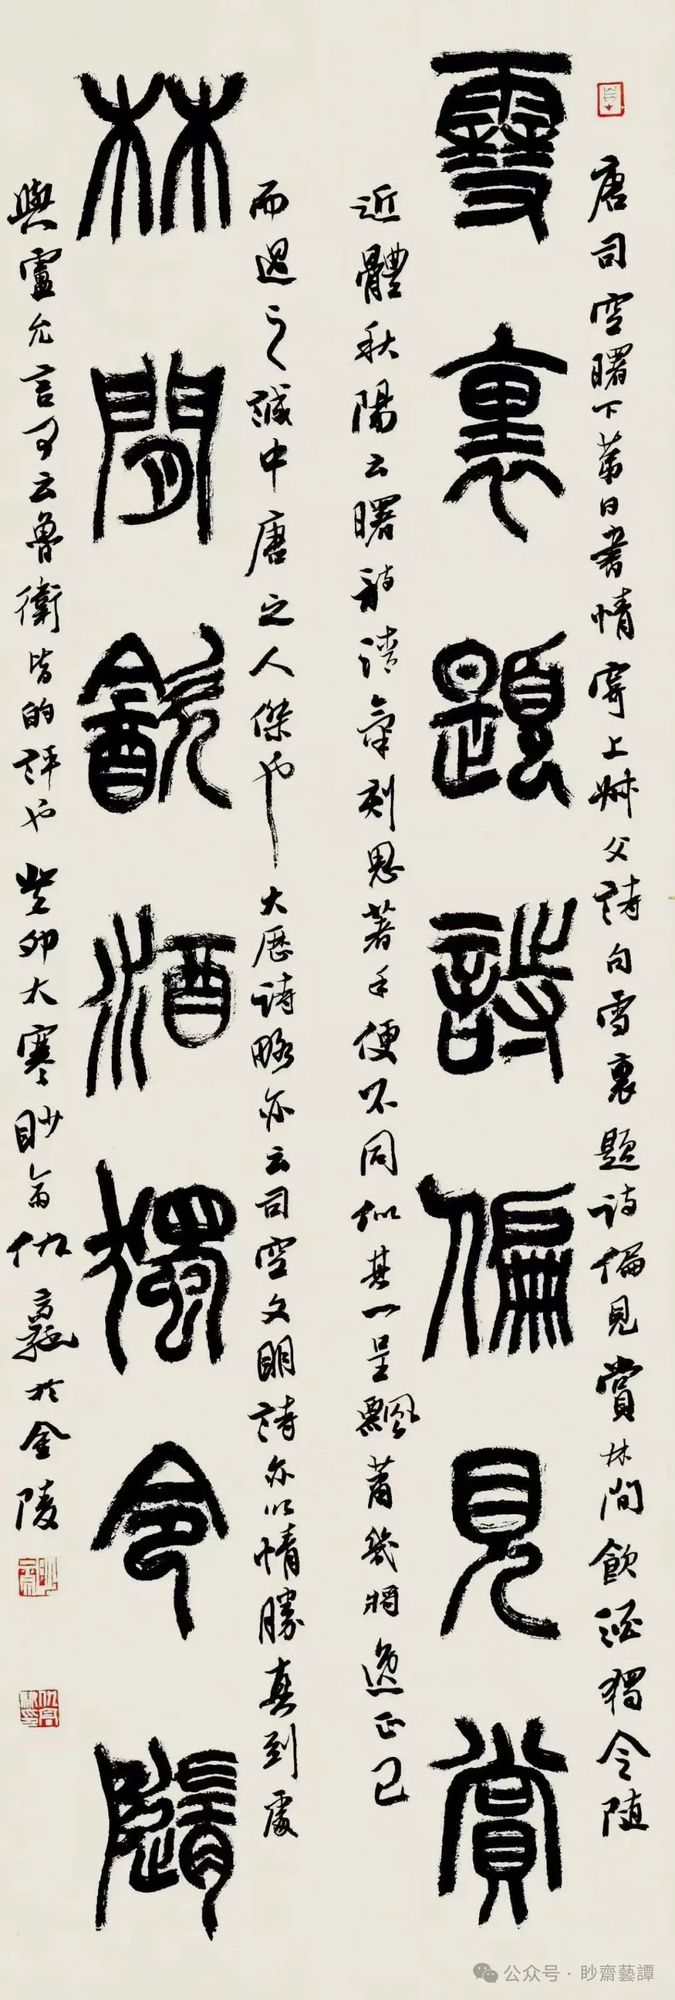 唐司空曙下第日書情寄上叔父詩句雪裏題詩偏見賞林間飲酒獨令隨
雪裏題詩偏見賞
近體秋陽云曙詩清氣刻思著手便不同似其一呈飄蕭幾將逸正己
而過之誠中唐之人傑也大歷詩略亦云司空文明詩亦以情勝真到處
林間飲酒獨令隨
與盧允言可云魯衛皆的評也癸卯大寒眇翁仇高馳於金陵
公众号·眇齋藝譚